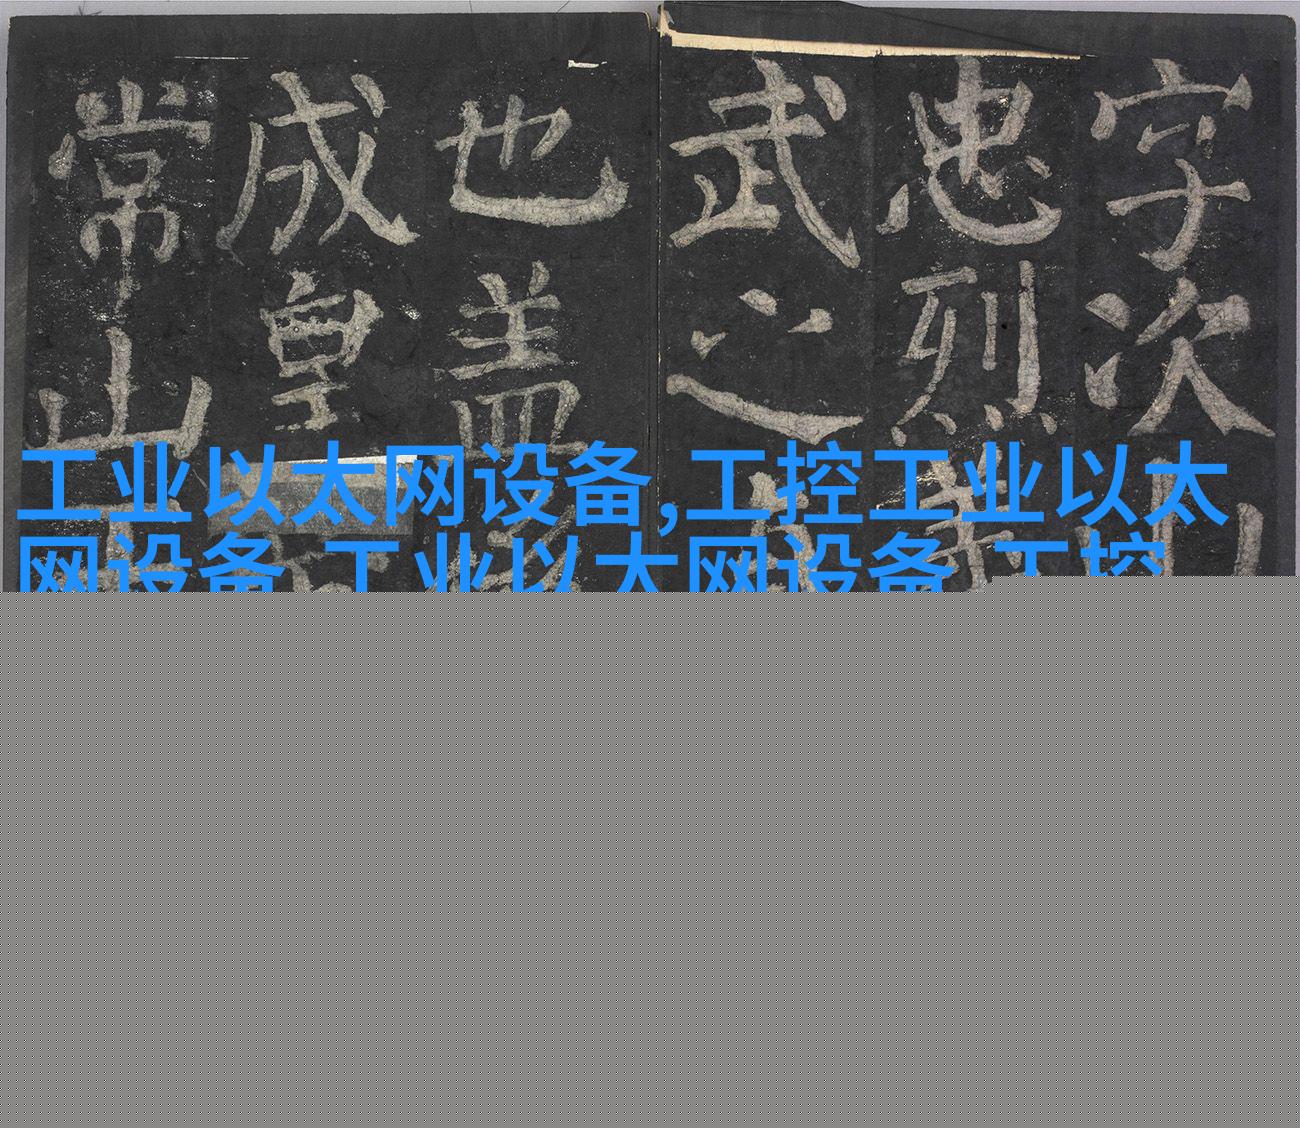 字次
忠烈
武之
也盖
成皇
常山
工业以太网设备,工控工业以太
网设备 工业以太网设备 工控